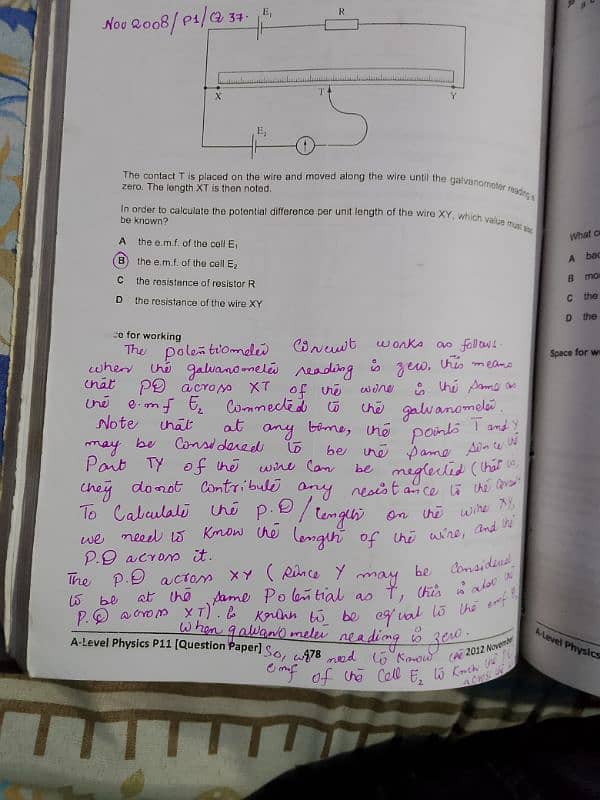 Nov 2008/P1/Q 37.
E₁
R
X
T
Y
E₂
The contact T is placed on the wire and moved along the wire until the galvanometer reading is
zero. The length XT is then noted.
In order to calculate the potential difference per unit length of the wire XY, which value must also
be known?
A the e.m.f. of the cell E₁
B the e.m.f. of the cell E₂
C the resistance of resistor R
D the resistance of the wire XY
ce for working
The potentiometer Circuit works as follows.
when the galvanometer reading is zero, this means
that PD across XT of the wire is the same as
the e.m.f E₂ Connected to the galvanometer.
Note that at any time, the points T and Y
may be Considered to be the same since the
Part TY of the wire Can be neglected (that is,
they donot Contribute any resistance to the
To Calculate the P.D/length on the wire XY,
we need to know the length of the wire, and the
P.D across it.
The P.D across XY (Since Y may be Considered
to be at the same Potential as T, this is also the
P.D across XT). is known to be equal to the emf
when galvanometer reading is zero.
So, we need to know the
emf of the Cell E₂ to know the
across the
A-Level Physics P11 [Question Paper]
478
2012 November
What
A
B
C the
D the
Space for
A-Level Physics